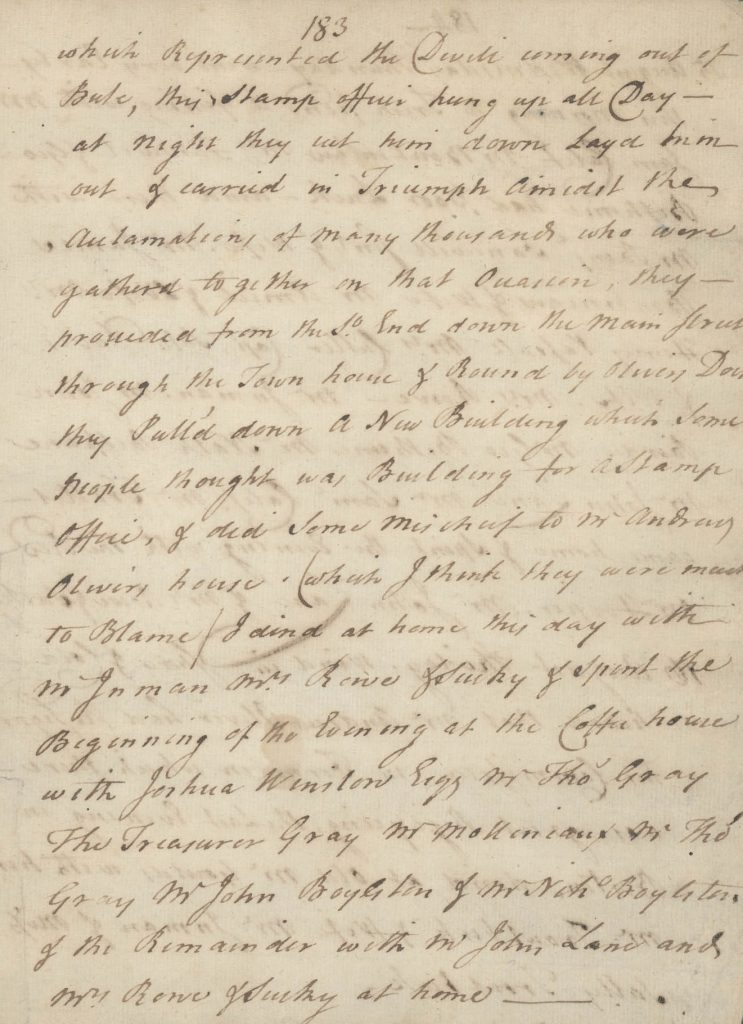 183
which Represented the Devill coming out of
Bute, this Stamp officer hung up all Day —
at night they cut him down Layd him
out & carried in Triumph amidst the
Acclamations of many thousands who were
gatherd together on that Occasion, they —
proceeded from the So. End down the Main Street
through the Town house & Round by Olivers Dock
they Pull'd down A New Building which some
people thought was Building for A Stamp
Office, & did some Mischief to Mr Andrew
Olivers house. (which I think they were much
to Blame) I dind at home this day with
Mr Inman Mrs Rowe & Sucky & Spent the
Beginning of the Evening at the Coffee house
with Joshua Winslow Esqr Mr Tho Gray
The Treasurer Gray Mr Mollineaux Mr Tho
Gray Mr John Boylston & Mr Nich Boylston
& the Remainder with Mr John Lane and
Mrs Rowe & Sucky at home —